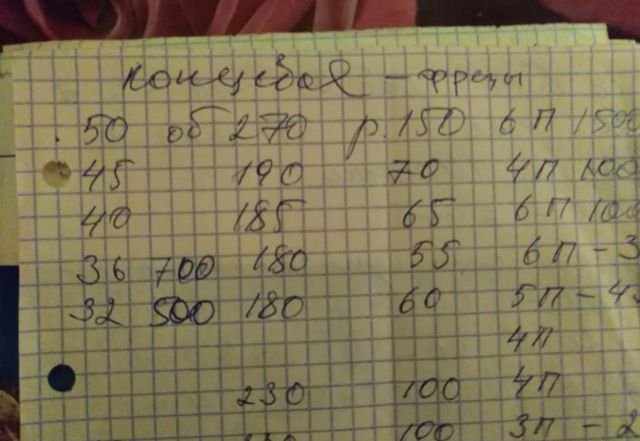 концевая - фрезы
50 об 270 р. 150 6П 150
45 190 70 4П 100
40 185 65 6П 100
36 700 180 55 6П - 3
32 500 180 60 5П - 4
4П
230 100 4П
100 3П - 2